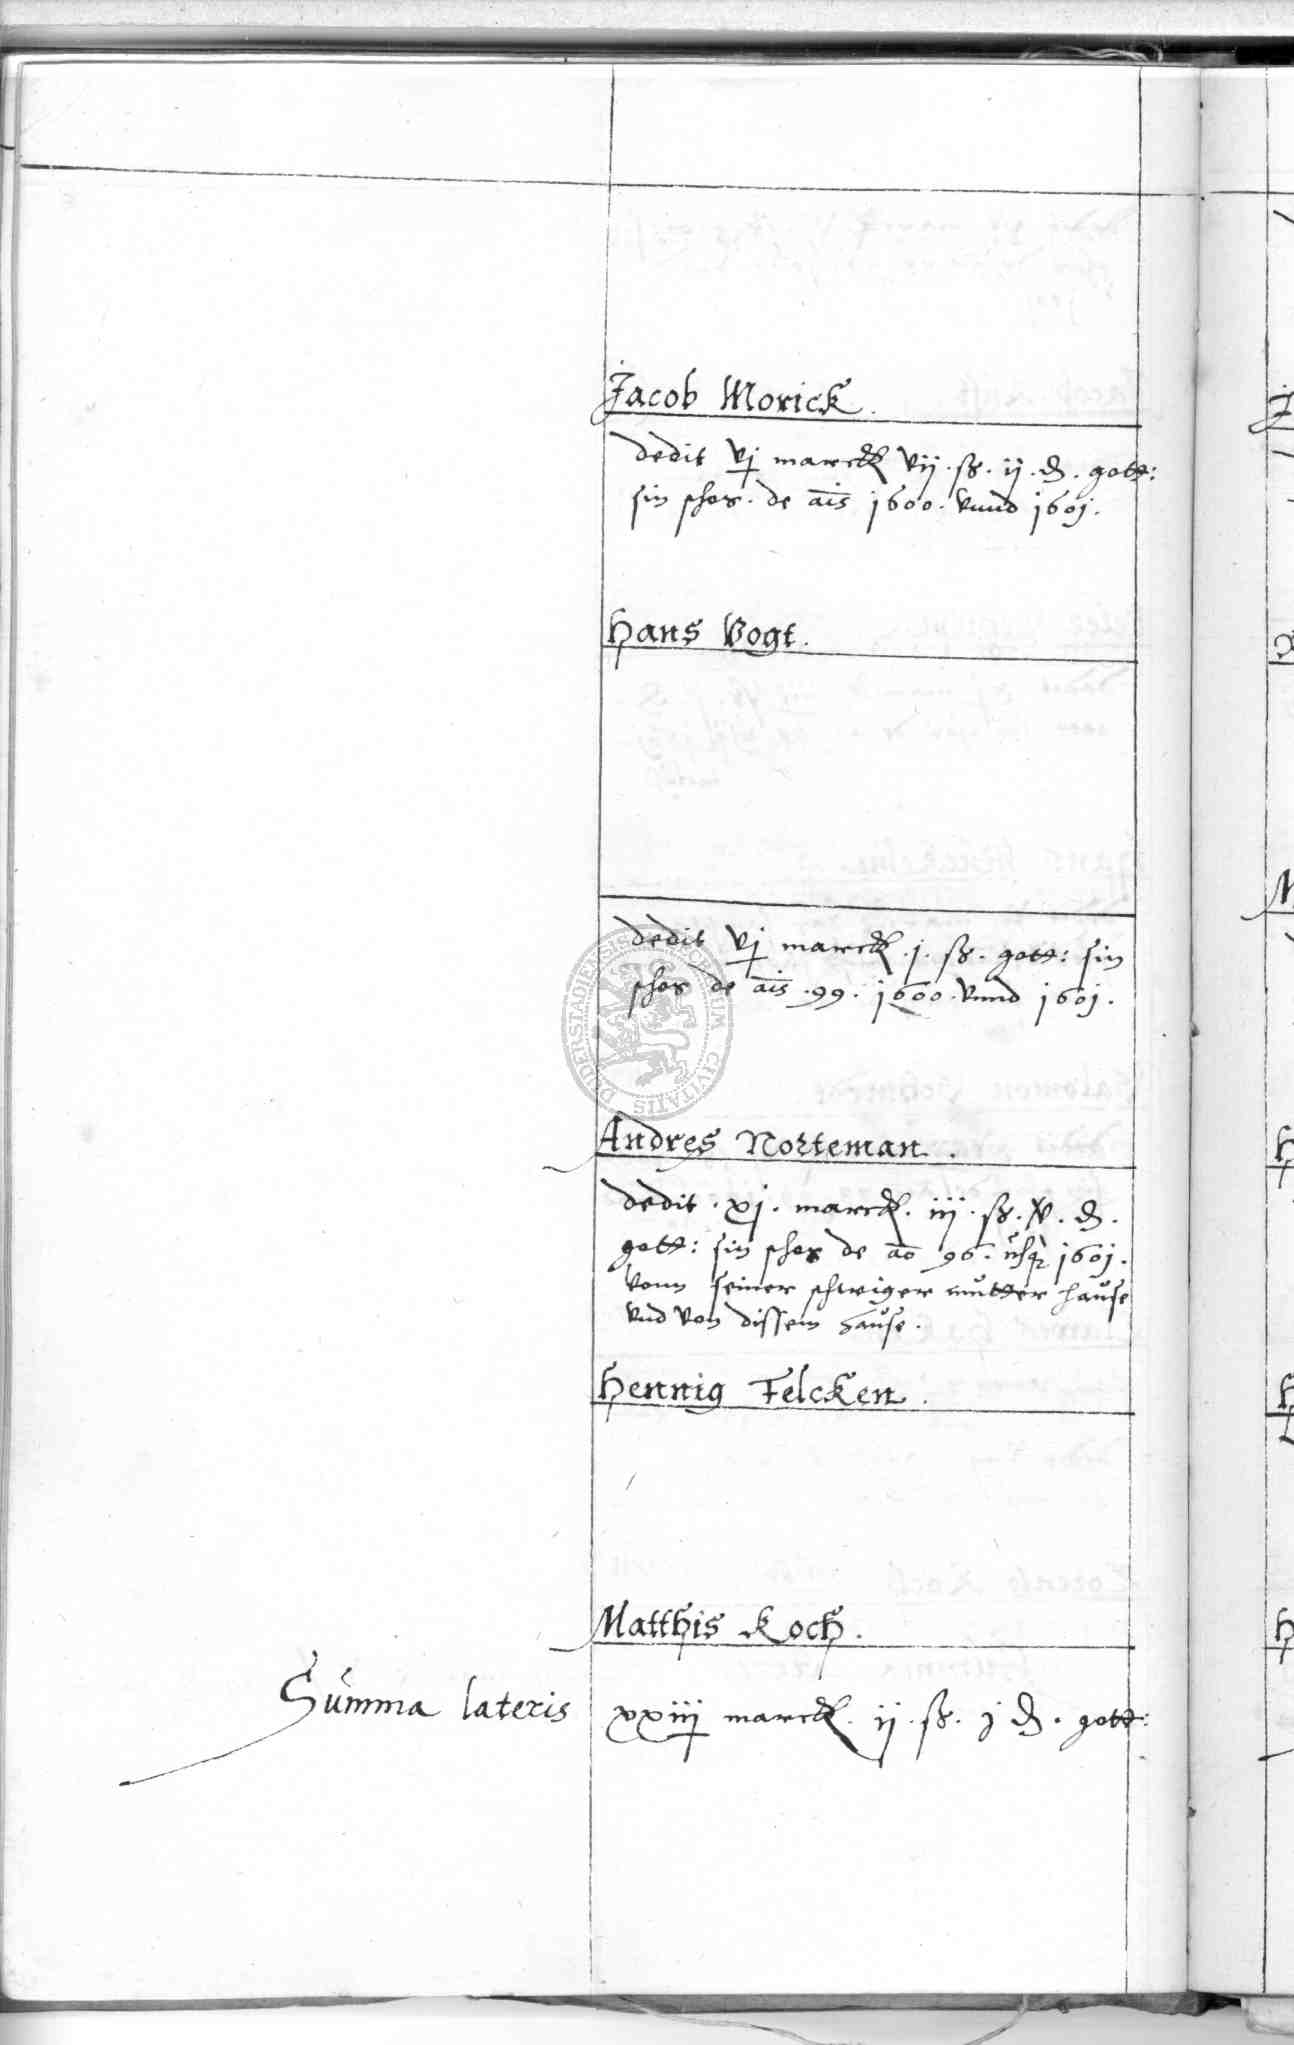 Jacob Morick.
dedit vj marck vij. ß. ij. d. gott:
sin schos. de ais 1600. vnnd 1601.
Hans Vogt.
dedit vj marck. j. ß. gott: sin
schos de ais .99. 1600. vnnd 1601.
Andres Norteman.
dedit. xj. marck. iij. ß. v. d.
gott: sin schos de ao 96. usq 1601.
vonn seiner schwiger mutter hause
vnd von dissem hause.
Hennig Felcken.
Matthis Koch.
Summa lateris xxiij marck. ij. ß. j d. gott:
SIGILLUM CIVITATIS DUDERSTADIENSIS